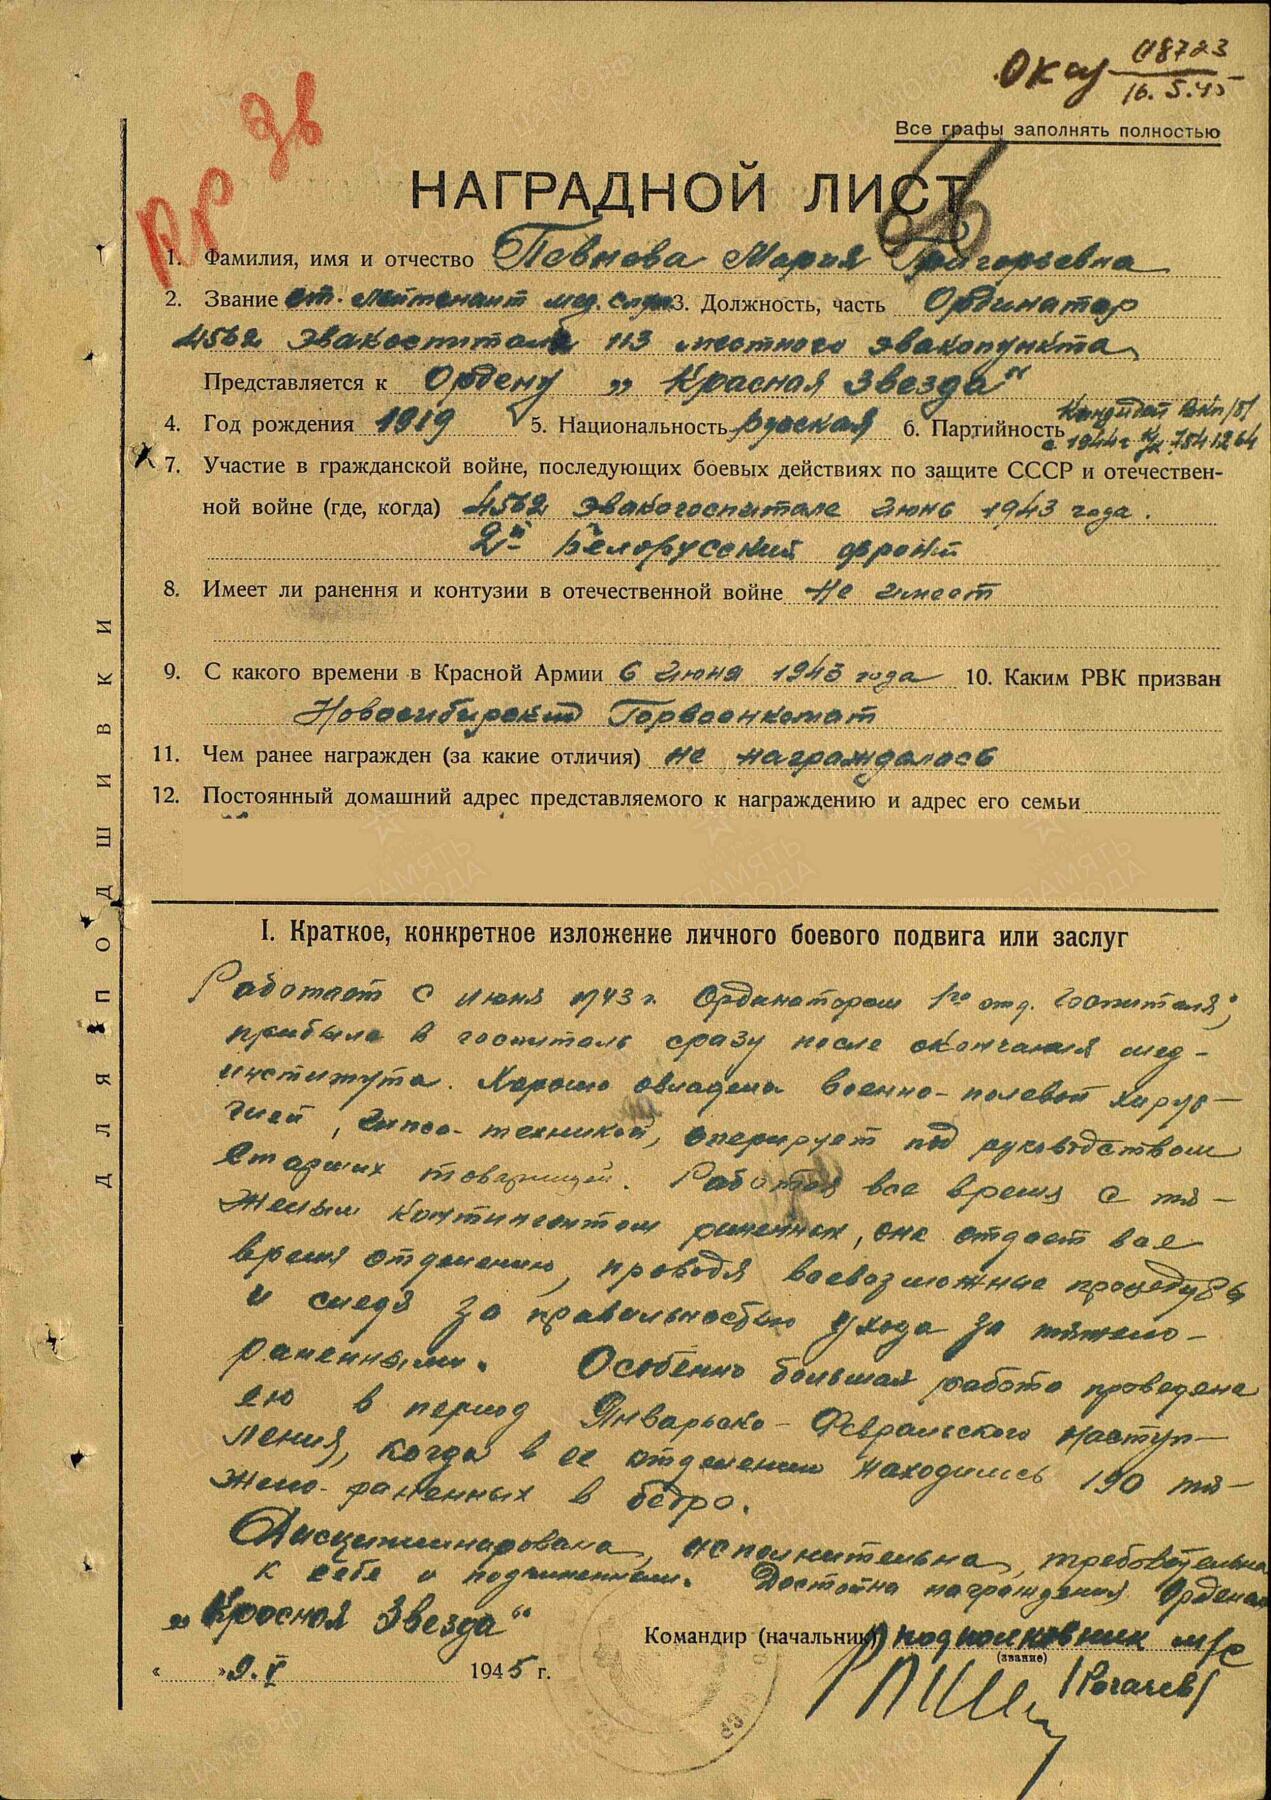 08723
16.5.45
Все графы заполнять полностью
НАГРАДНОЙ ЛИСТ
1. Фамилия, имя и отчество Певнова Мария Григорьевна
2. Звание ст. лейтенант мед. служ 3. Должность, часть Ординатор
4562 эвакоспиталя 113 местного эвакопункта
Представляется к Ордену „Красная Звезда“
4. Год рождения 1919 5. Национальность русская 6. Партийность Кандидат ВКП/б/
с 1944 г. к/к 7541264
7. Участие в гражданской войне, последующих боевых действиях по защите СССР и отечествен-
ной войне (где, когда) 4562 эвакогоспитале Июнь 1943 года.
2й Белорусский фронт
8. Имеет ли ранения и контузии в отечественной войне Не имеет
9. С какого времени в Красной Армии 6 Июня 1943 года 10. Каким РВК призван
Новосибирский Горвоенкомат
11. Чем ранее награжден (за какие отличия) не награждалась
12. Постоянный домашний адрес представляемого к награждению и адрес его семьи
ДЛЯ ПОДШИВКИ
I. Краткое, конкретное изложение личного боевого подвига или заслуг
Работает с июня 1943 г. Ординатором 1го отд. госпиталя;
прибыла в госпиталь сразу после окончания мед-
института. Хорошо овладела военно-полевой хирур-
гией, гипсо-техникой, оперирует под руководством
старших товарищей. Работая все время с тя-
желым контингентом раненных, она отдает все
время отделению, проводя всевозможные процедуры
и следя за правильностью ухода за тяжело-
раненными. Особенно большая работа проведена
ею в период Январьско-Февральского наступ-
ления, когда в ее отделении находились 190 тя-
жело-раненных в бедро.
Дисциплинирована, исполнительна, требовательна
к себе и подчиненным. Достойна награждения Орденом
„Красная Звезда“
Командир (начальник) подполковник м/с
(звание)
/Рогачев/
« » 9.V 1945 г.